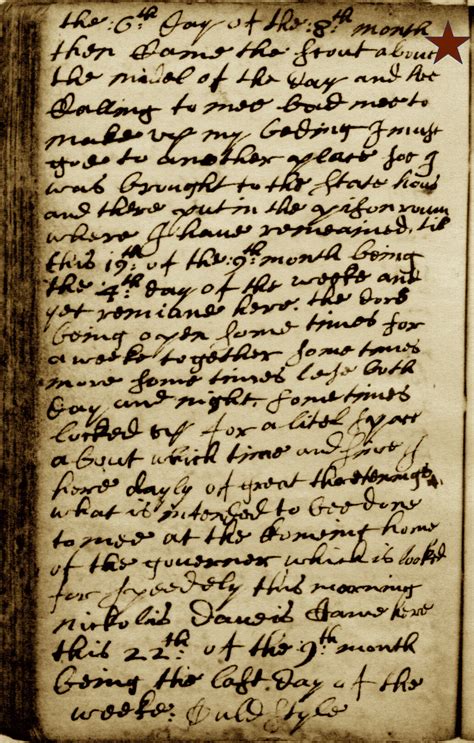 the :6th: day of the :8th: month
then Came the scout about
the midel of the day and hee
Calling to mee bad mee to
make up my beding J must
goe to another place soe J
was brought to the state hous
and there put in the prison roum
where J have remeained, til
this 19th: of the :9th: month being
the 4th: day of the weeke and
yet remiane here. the dore
being open some times for
a weeke together some times
more some times lese both
day and night, sometimes
locked up for a litel space
about which time and
here dayly of great thretenings
what is intended to bee done
to mee at the komeing home
of the governer which is looked
for speedely this morning
Nickolis Daveis Came here
this 22th: of the :9th: month
being the last day of the
weeke: Ould style